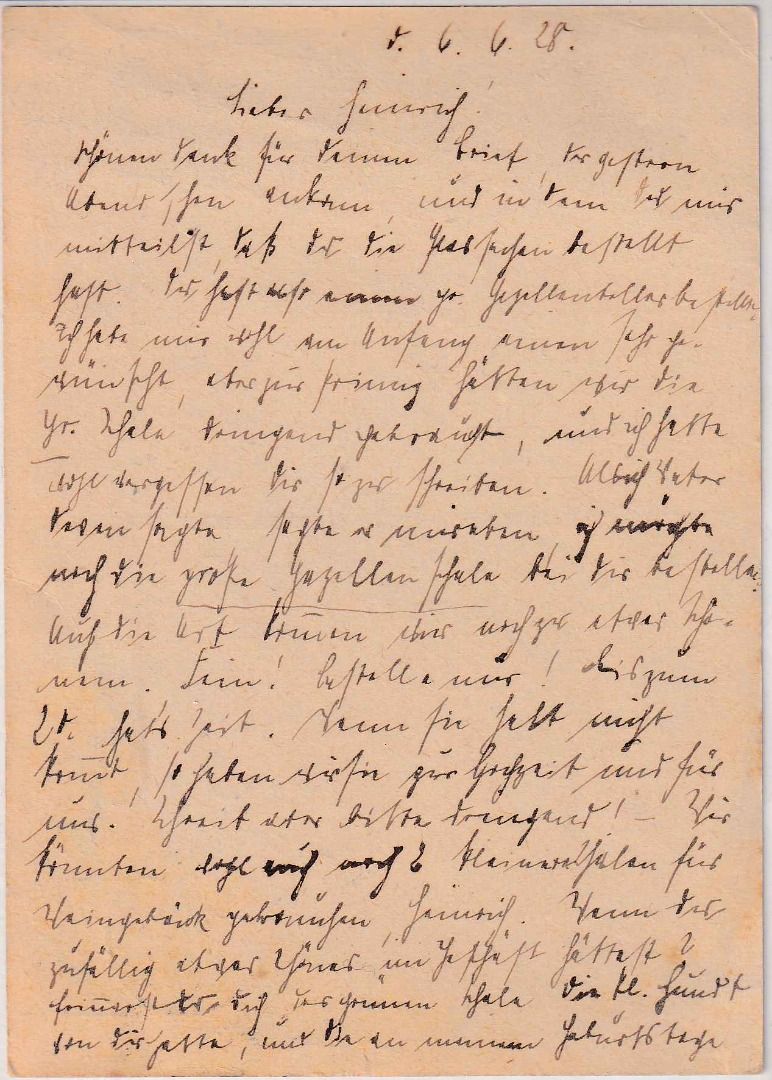 d. 6. 6. 28.
Lieber Heinrich!
Schönen Dank für Deinen Brief, der gestern
Abend schon ankam, und in dem Du mir
mitteilst, daß Du die Glassachen bestellt
hast. Du hast also einen gr. Gazellenteller bestellt.
Ich habe mir wohl am Anfang einen sehr ge-
wünscht, aber zur hätten wir die
gr. Schale dringend gebraucht, und ich hatte
wohl vergessen Dir so zu schreiben. Als ich Vater
davon sagte sagte er mir eben, ich möchte
noch die große Gazellenschale bei Dir bestellen.
Auf die Art kommen wir noch zu etwas Schö-
nem. Fein! Bestelle nur! Bis zum
20. hat's Zeit. Wenn sie halt nicht
kommt, so haben wir sie zur Hochzeit und für
uns. Schreib aber bitte dringend! – Wir
könnten wohl auch noch 2 kleinere Schalen für
Weingebäck gebrauchen, Heinrich. Wenn Du
zufällig etwas Schönes im Geschäft hättest?
Erinnerst Du Dich der grünen Schale die Kl. Hundt
von Dir hatte, und die an meinem Geburtstage